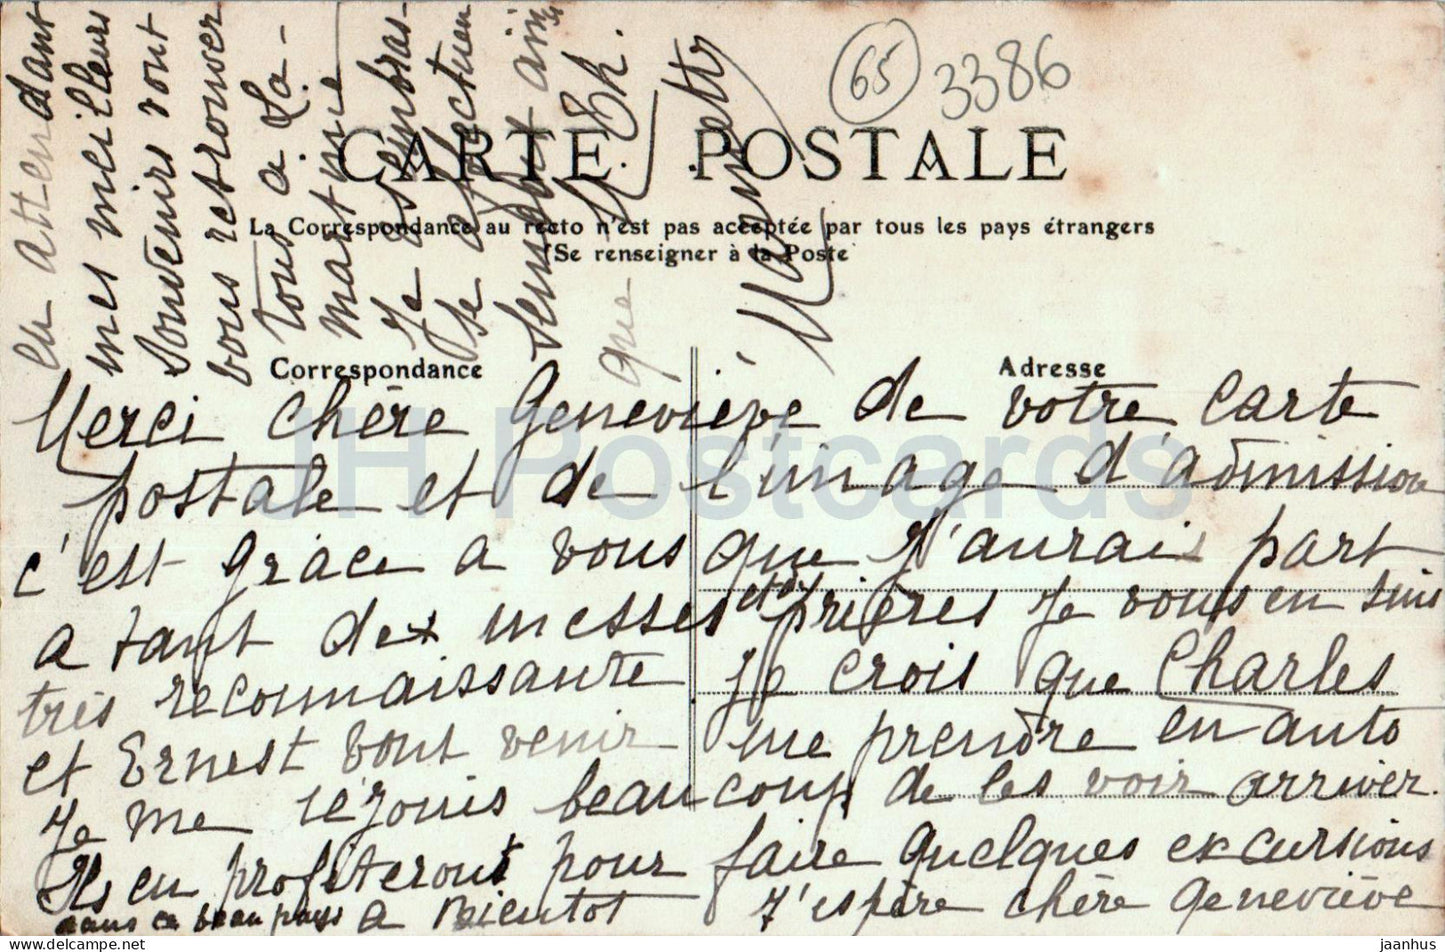 65 3386
CARTE POSTALE
La Correspondance au recto n'est pas acceptée par tous les pays étrangers
(Se renseigner à la Poste
Correspondance
Adresse
Merci chère Geneviève de votre carte
postale et de l'image d'admission
c'est grâce a vous que j'aurais part
a tant de messes et de prières je vous en suis
très reconnaissante je crois que Charles
et Ernest vont venir me prendre en auto
je me réjouis beaucoup de les voir arriver.
Ils en profiteront pour faire quelques excursions
dans ce beau pays a bientot j'espère chère Geneviève
en attendant
mes meilleurs
souvenirs vont
vous retrouver
tous a La-
martine
je
affectueu
sement
que
JH Postcards
jaanhus